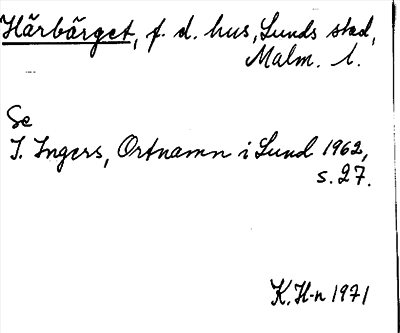 Härbärget, f. d. hus, Lunds stad,
Malm. l.
Se
I. Ingers, Ortnamn i Lund 1962,
s. 27.
K. H-n 1971